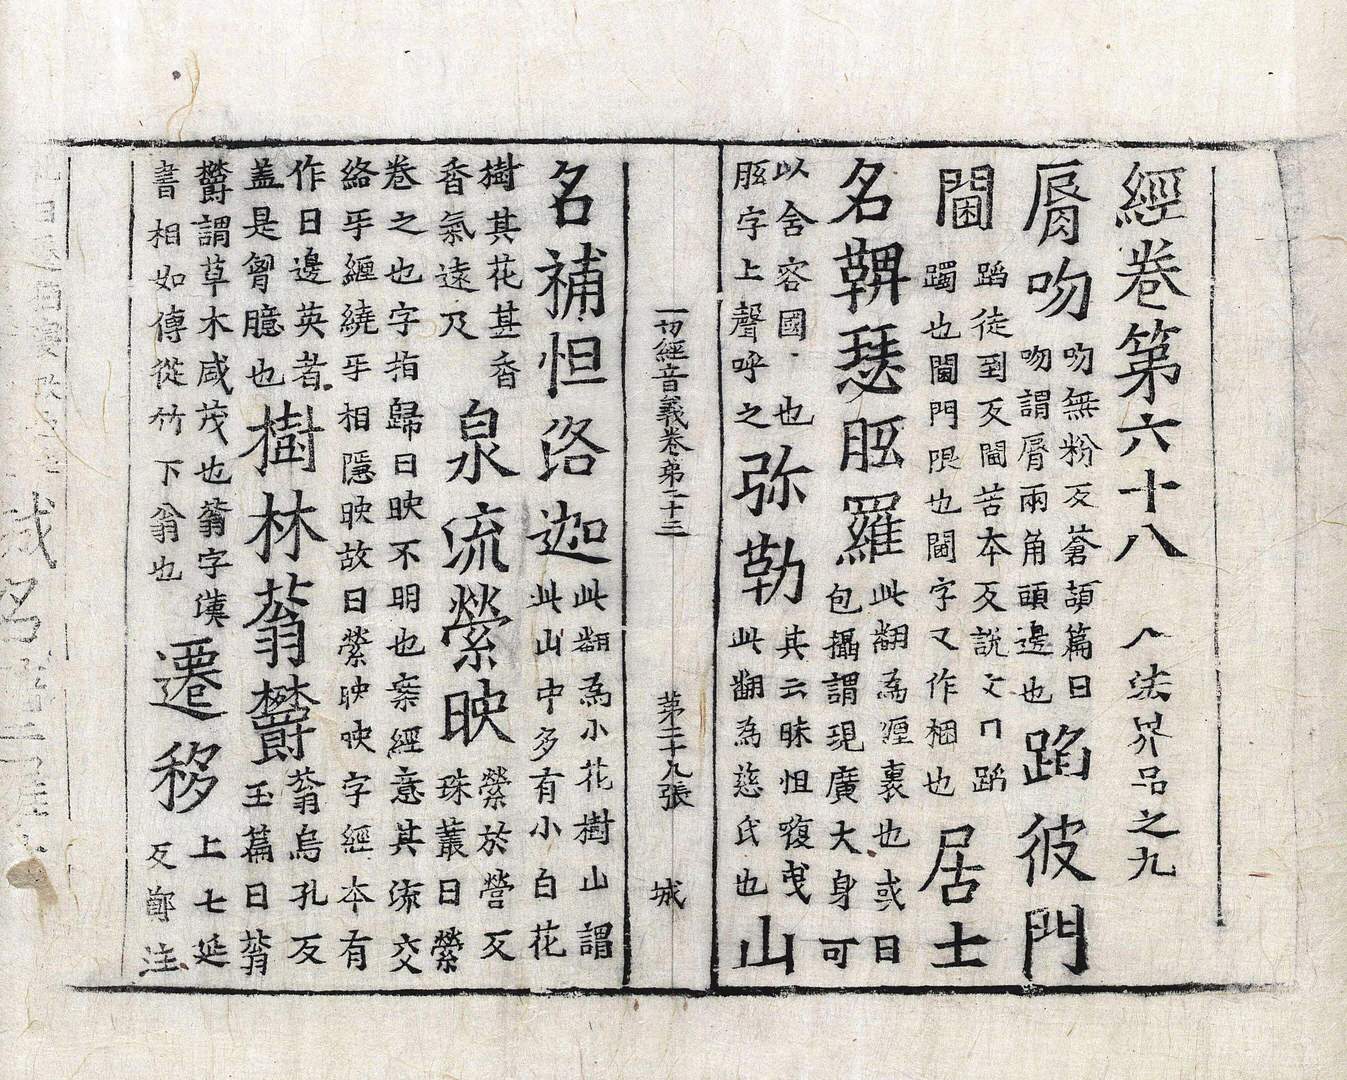 經卷第六十八 入法界品之九
脣吻 吻無粉反蒼頡篇曰吻謂脣兩角頭邊也 蹈彼門
閫 蹈徒到反閫苦本反說文曰蹈躅也閫門限也閫字又作梱也 居士
名鞞瑟胝羅 此翻為纏裹也或曰包攝謂現廣大身可
以舍容國 也胝字上聲呼之 弥勒 其云昧怛㗚曳此翻為慈氏也 山
一切經音義卷第二十三 第二十九張 城
名補怛洛迦 此翻為小花樹山謂此山中多有小白花
樹其花甚香香氣遠及 泉流縈映 縈於營反珠叢曰縈
卷之也字指歸曰映不明也案經意其流交
絡乎纏繞乎相隱映故曰縈映映字經本有
作日邊英者盖是胷臆也 樹林蓊欝 蓊烏孔反玉篇曰蓊
欝謂草木咸茂也蓊字漢書相如傳從竹下翁也 遷移 上七延反鄭注